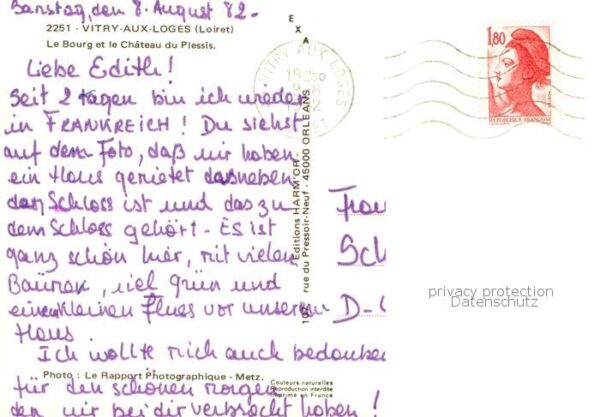 Samstag, den 8. August 82.
2251 - VITRY-AUX-LOGES (Loiret)
Le Bourg et le Château du Plessis.
Liebe Edith!
Seit 2 tagen bin ich wieder
in FRANKREICH! Du siehst
auf dem Foto, daß wir haben
ein Haus gemietet daneben
das Schloss ist und das zu
dem Schloss gehört - Es ist
ganz schön hier, mit vielen
Bäumen, viel grün und
einen kleinen Fluss vor unserem
Haus.
Ich wollte mich auch bedanken
Photo : Le Rapport Photographique - Metz.
für den schönen morgen
den wir bei dir verbracht haben!
EXA
Editions HARM'OR
rue du Pressoir-Neuf - 45000 ORLEANS
Couleurs naturelles
Reproduction interdite
Imprimé en France
VITRY AUX LOGES
1,80
REPUBLIQUE FRANÇAISE
Frau
Sch
D-
privacy protection
Datenschutz